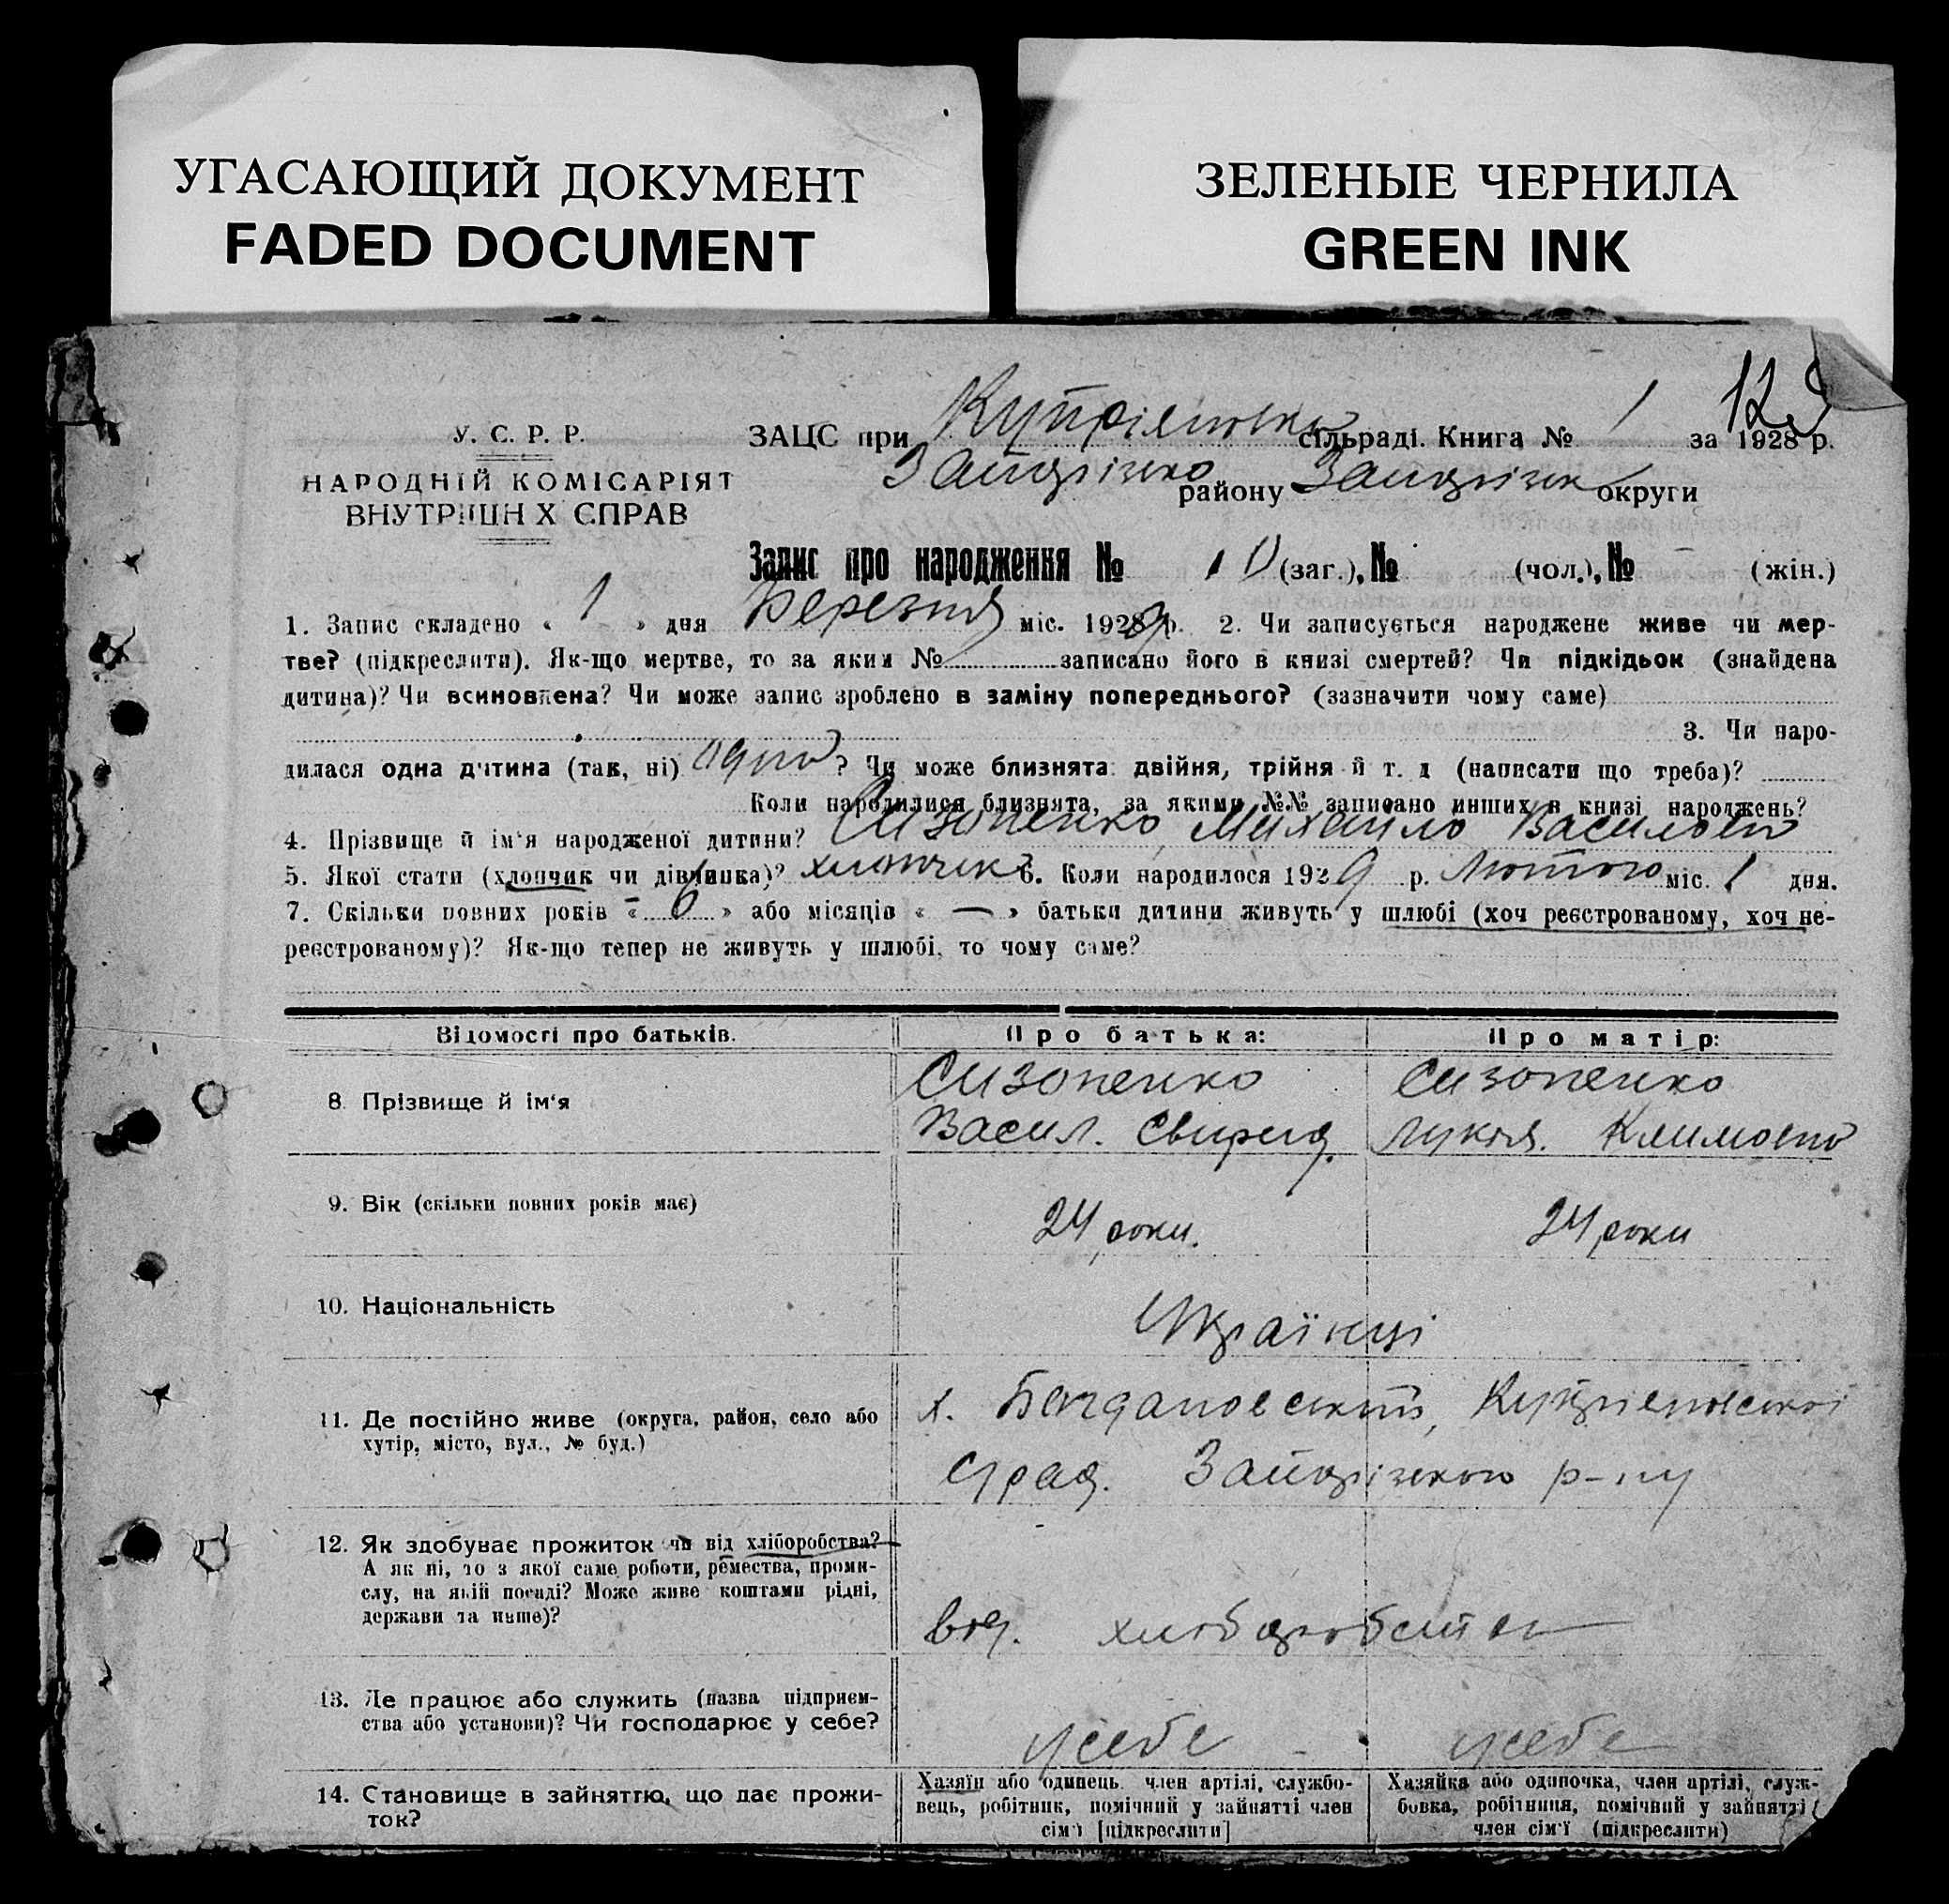 УГАСАЮЩИЙ ДОКУМЕНТ
FADED DOCUMENT
ЗЕЛЕНЫЕ ЧЕРНИЛА
GREEN INK
128
У. С. Р. Р.
НАРОДНІЙ КОМІСАРІЯТ
ВНУТРІШН Х СПРАВ
ЗАЦС при Купріяновко сільраді. Книга № 1 за 1928 р.
Запорізько району Запорізьк округи
Запис про народження № 10 (заг.), № (чол.), № — (жін.)
1. Запис складено « 1 » дня Березня міс. 1929 р. 2. Чи записується народжене живе чи мер-
тве? (підкреслити). Як-що мертве, то за яким № записано його в книзі смертей? Чи підкідьок (знайдена
дитина)? Чи всиновлена? Чи може запис зроблено в заміну попереднього? (зазначити чому саме)
3. Чи наро-
дилася одна дитина (так, ні) одна ? Чи може близнята: двійня, трійня й т. д (написати що треба)?
Коли народилися близнята, за якими №№ записано инших в книзі народжень?
4. Прізвище й ім'я народженої дитини? Сизоненко Михайло Васильов
5. Якої стати (хлопчик чи дівчинка)? хлопчик 6. Коли народилося 1929 р. Лютого міс. 1 дня.
7. Скільки повних років « 6 » або місяців « — » батьки дитини живуть у шлюбі (хоч реєстрованому, хоч не-
реєстрованому)? Як-що тепер не живуть у шлюбі, то чому саме?
Відомості про батьків. Про батька: Про матір:
8. Прізвище й ім'я
Сизоненко
Васил. Свирид.
Сизоненко
Лукія. Климовна
9. Вік (скільки повних років має)
24 роки.
24 роки
10. Національність
Українці
11. Де постійно живе (округа, район, село або
хутір, місто, вул., № буд.)
х. Богдановський, Купріяновської
С/рад. Запорізького р-ну
12. Як здобуває прожиток чи від хліборобства?
А як ні, то з якої саме роботи, ремества, проми-
слу, на якій посаді? Може живе коштами рідні,
держави та инше)?
від. хліборобства
13. Де працює або служить (назва підприєм-
ства або установи)? Чи господарює у себе?
у себе
у себе
14. Становище в зайняттю, що дає прожи-
ток?
Хазяїн або одинець, член артілі, службо-
вець, робітник, помічний у зайнятті член
сім'ї [підкреслити]
Хазяйка або одиночка, член артілі, служ-
бовка, робітниця, помічний у зайнятті
член сім'ї (підкреслити)